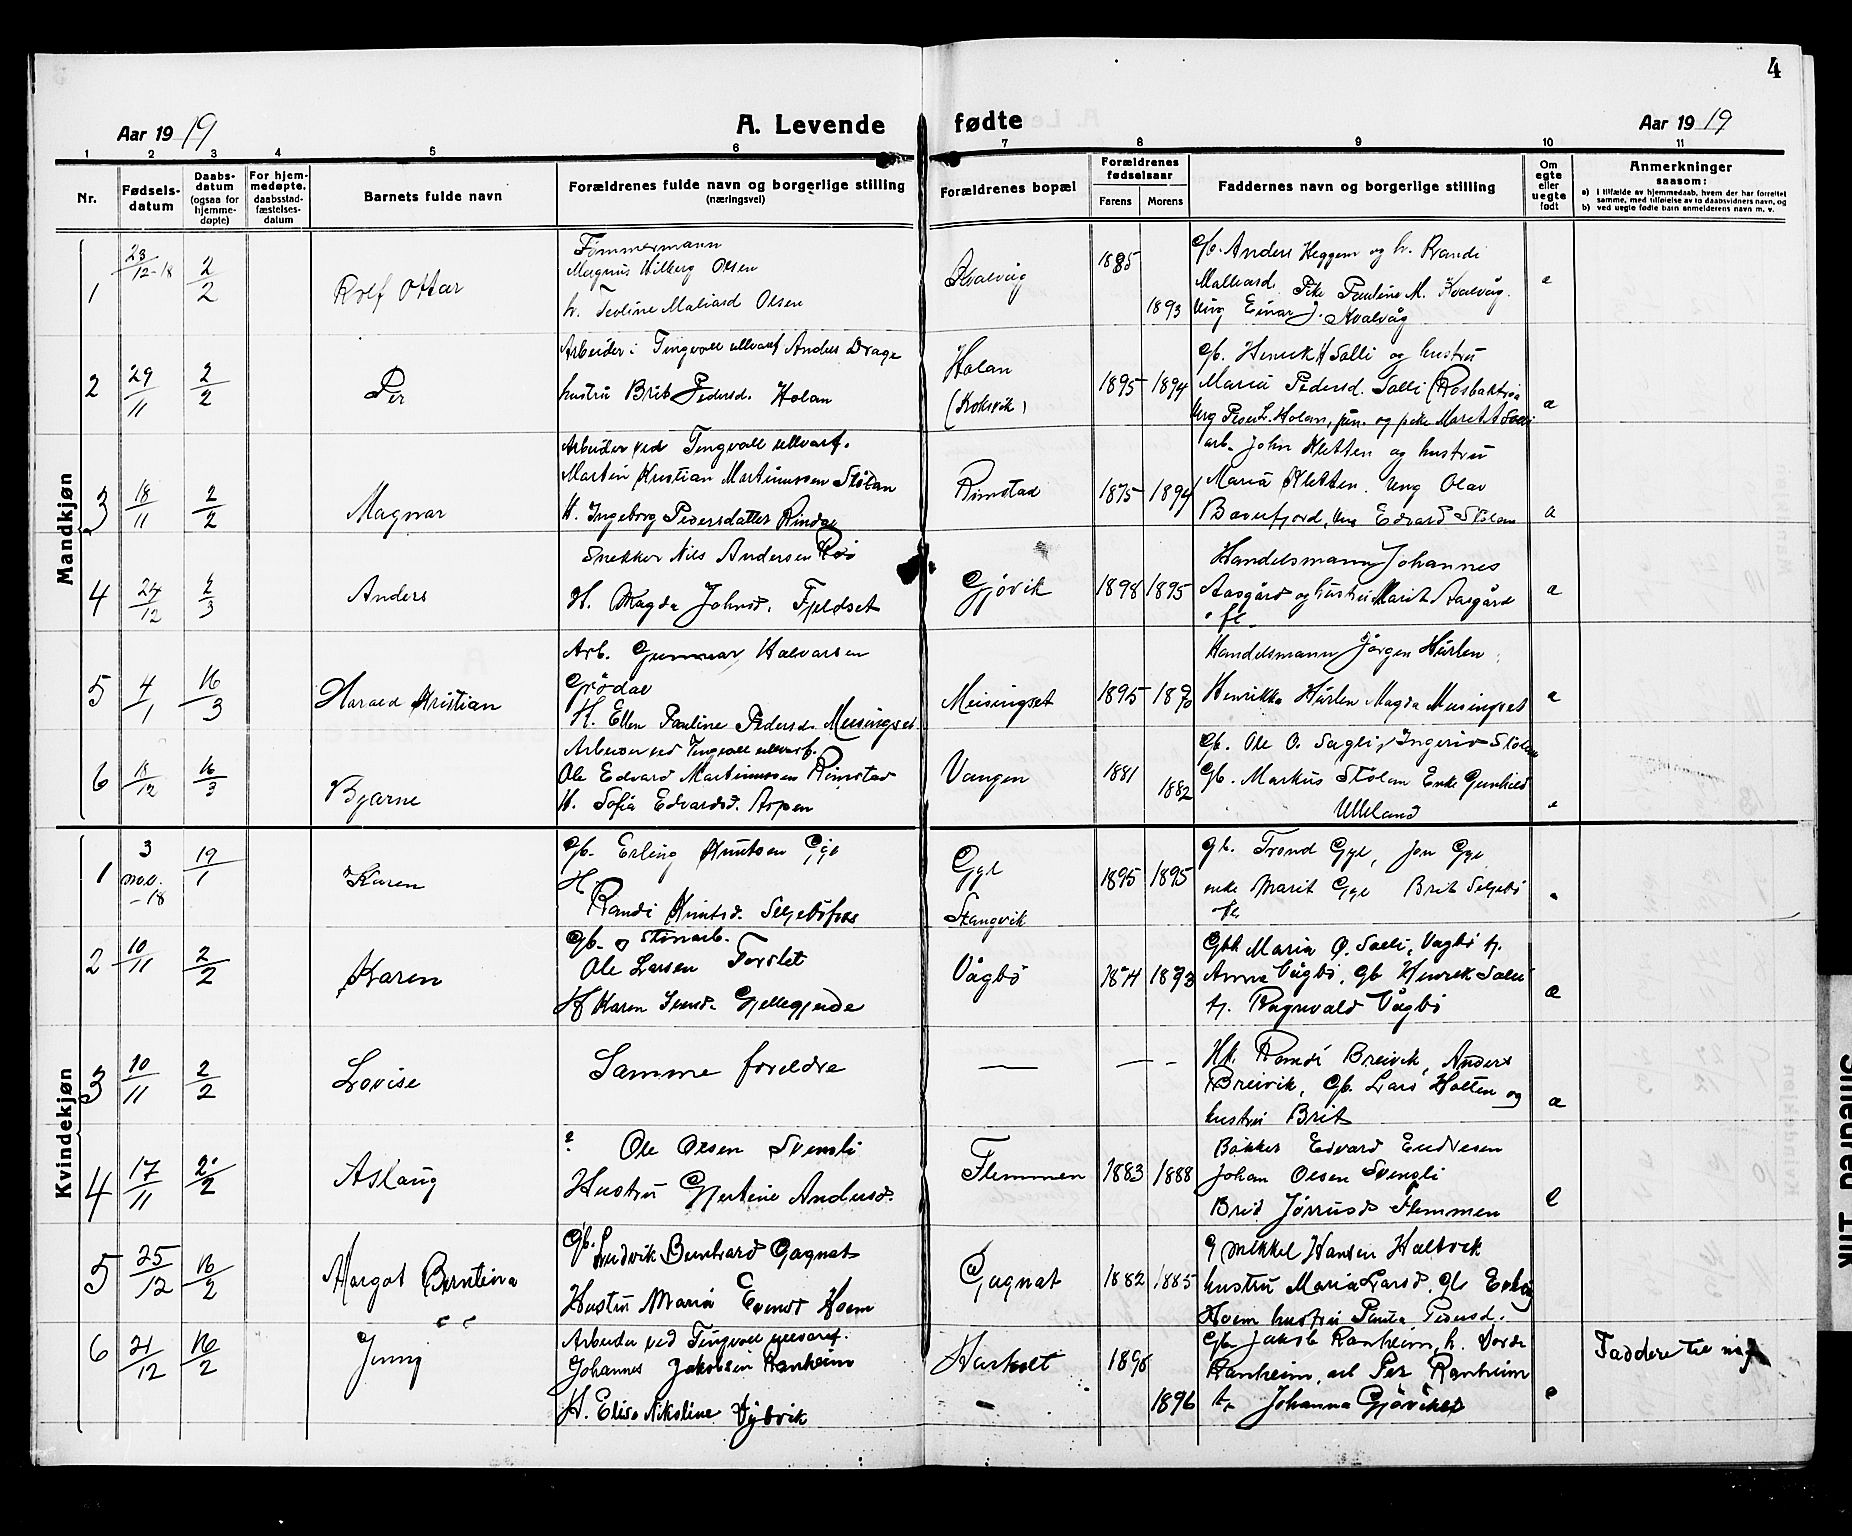 4
Aar 1919
A. Levende fødte
Aar 1919
1 2 3 4 5 6 7 8 9 10 11
Nr.
Fødsels-
datum
Daabs-
datum
(ogsaa for
hjemme-
døpte)
For hjem-
medøpte,
daabsstad-
fæstelses-
datum
Barnets fulde navn
Forældrenes fulde navn og borgerlige stilling
(næringsvei)
Forældrenes bopæl
Forældrenes
fødselsaar
Farens Morens
Faddernes navn og borgerlige stilling
Om
egte
eller
uegte
født
Anmerkninger
saasom:
a) I tilfælde av hjemmedaab, hvem der har forrettet
samme, med tilføielse av to daabsvidners navn, og
b) ved uegte fødte barn anmelderens navn m. v.
Mandkjøn
1
23/12-18
2/2
Rolf Ottar
Tømmermann
Magnus Hilberg Olsen
h. Teoline Maliard Olsen
Kvalvåg
1885
1893
Gb. Anders Heggem og h. Randi
Malliard Pike Pauline M. Kvalvåg.
Ung Einar J. Kvalvåg
e
2
29/11
2/2
Per
Arbeider i Tingvoll ullvarf Anders Drage
hustru Brit Pedersd. Holan
Holan
(Koksvik)
1895 1894
Gb. Henrik H Salli og hustru
Maria Pedersd. Salli
Ung Peder L. Holan, jun. og pike Marit A Salli
e
3
18/11
2/2
Magnar
Arbeider ved Tingvoll ullvarf.
Martin Kristian Martinussen Stølan
H. Ingeborg Pedersdatter Rindge
Rimstad
1875 1894
arb. John Kletten og hustru
Maria Kletten. Ung Olav
Baverfjord, Ung Edvard Stølan
e
4
24/12
2/3
Anders
Snekker Nils Andersen Røs
H. Magda Johnsd. Fjeldset
Gjøvik
1898 1895
Handelsmann Johannes
Aasgård og hustru Marit Aasgård
o fl.
e
5
4/1
16/3
Harald Kristian
Arb. Gunnar Halvorsen
Grødal
H. Ellen Pauline Pedersd. Meisingset
Meisingset
1895 1890
Handelsmann Jørgen Hürlen
Henrikka Hürlen Magda Meisingset
e
6
18/12
16/3
Bjarne
Arbeider ved Tingvoll ullvarf.
Ole Edvard Martinussen Rimstad
H. Sofia Edvardsd. Aspen
Vangen
1881
1882
Gb. Ole O. Sagli, Ingerid Stølan
Gb. Markus Stølan Enke Gunhild
Ulleland
e
Kvindekjøn
1
3
nov.
-18
19/1
Karen
Gb. Erling Knutsen Gyl
H.
Randi Knutsd. Seljebøfoss
Gyl
Stangvik
1895 1895
gb. Trond Gyl, Jon Gyl
enke Marit Gyl Brit Seljebø
ofl
e
2
10/11
2/2
Karen
Gb. og Stenarb.
Ole Larsen Torslet
H Karen Iversd. Gjellegjerde
Vågbø
1874 1893
Gbk Maria O. Salli, Vågbø tj.
Anna Vågbø, Gb Henrik Salli
tj. Ragnvald Vågbø
e
3
10/11
2/2
Lovise
Samme foreldre
— — -
Hk. Randi Breivik, Anders
Breivik, Gb. Lars Holten og
hustru Brit
e
4
17/11
2/2
Aslaug
? Ole Olsen Svensli
Hustru Gjertine Andersd.
Flemmen
1883 1888
Bakker Edvard Endresen
Johan Olsen Svensli
Brid Jørrusd Flemmen
e
5
25/12
16/2
Margot Berntina
Gb. Ludvik Bernhard Gagnat
Hustru Maria Evensd Hoem
Gagnat
1882 1885
G Mikkel Hansen Holtvik
hustru Maria Larsd. Gb
Hoem hustru Pedersd.
6
21/12
16/2
Jenny
Arbeider ved Tingvoll ullvarf.
Johannes Jakobsen Ranheim
H. Elise Nikoline Dybvik
1896
- 1896
Gb Jakob Ranheim, h. Dordi
Ranheim, arb Per Ranheim
tj. Johanna Gjøvikli
e
Faddere til